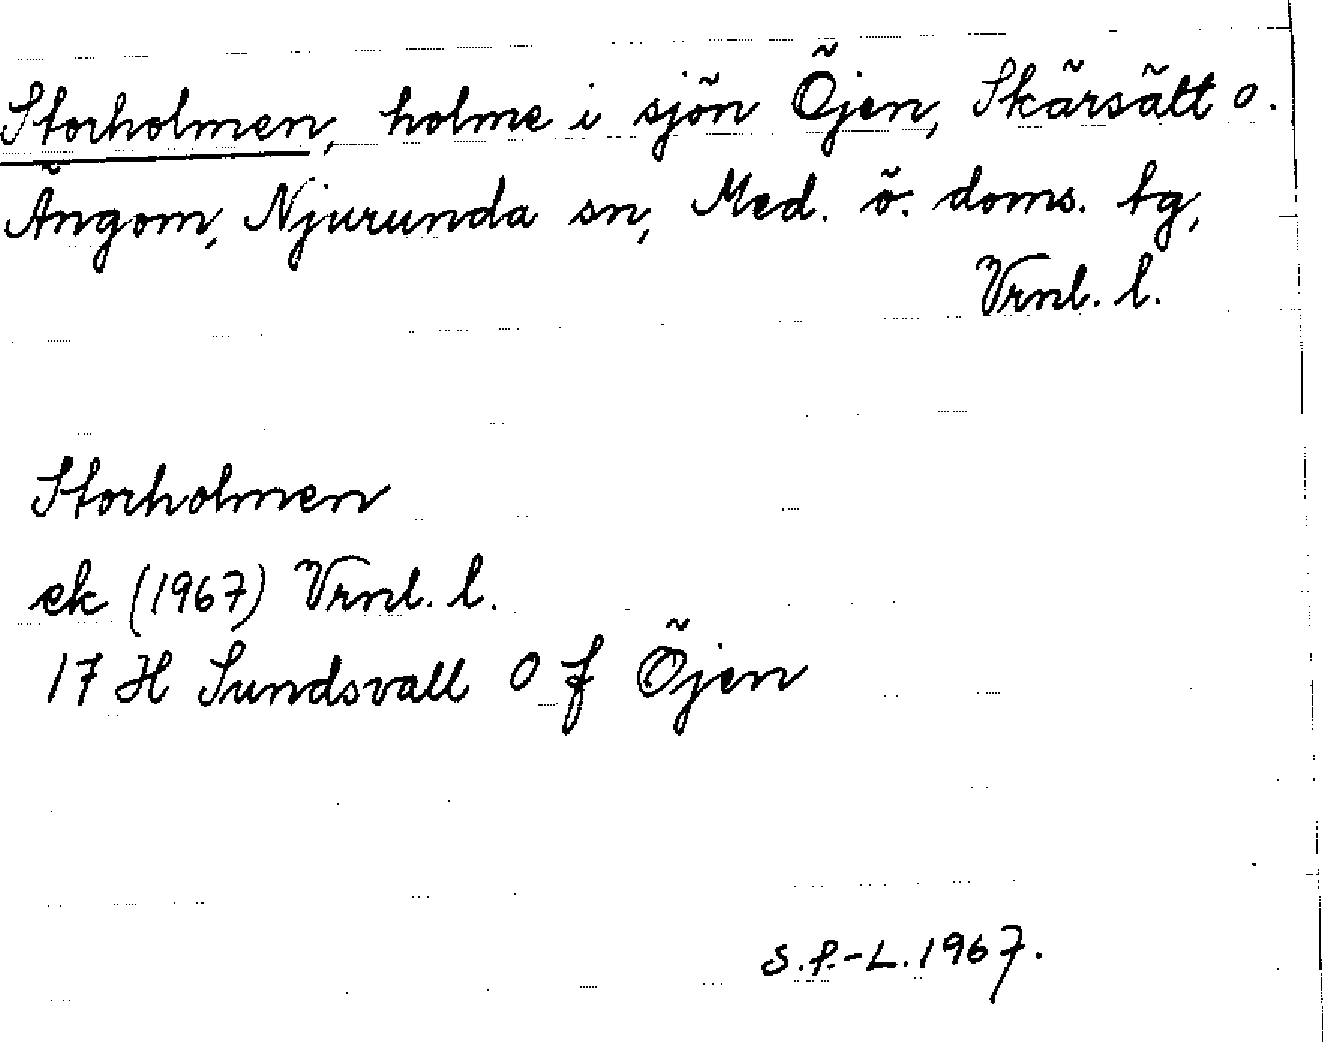 Storholmen, holme i sjön Öjen, Skärsätt o.
Ängom, Njurunda sn, Med. ö. doms. tg,
Vrnl. l.
Storholmen
ek (1967) Vrnl. l.
17 H Sundsvall O f Öjen
S.P.-L. 1967.